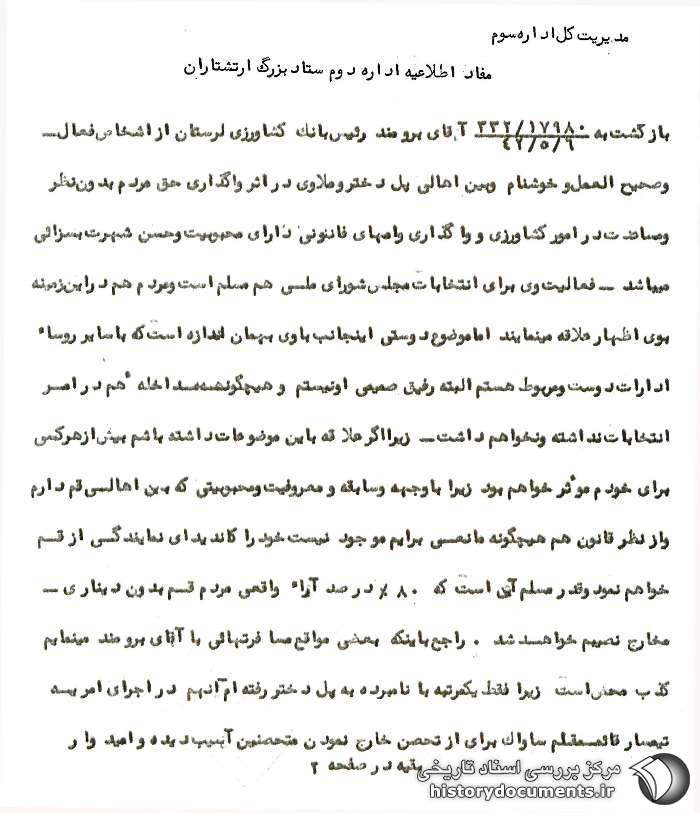 مدیریت کل اداره سوم
مفاد اطلاعیه اداره دوم ستاد بزرگ ارتشتاران
بازگشت به ۳۳۲/۱۷۹۸۰ آقای برومند رئیس بانک کشاورزی لرستان از اشخاص فعال ــ
۴۲/۵/۶
وصحیح العمل و خوشنام وبین اهالی پل دختر وملاوی در اثر واگذاری حق مردم بدون نظر
ومساعدت در امور کشاورزی و واگذاری وامهای قانونی دارای محبوبیت وحسن شهرت بسزائی
میباشد ــ فعالیت وی برای انتخابات مجلس شورای ملسی هم مسلم است ومردم هم در این زمینه
بوی اظهار علاقه مینمایند اما موضوع دوستی اینجانب با وی بهمان اندازه است که با سایر روساء
ادارات دوست ومربوط هستم البته رفیق صمیمی او نیستم و هیچگونه مداخله هم در امر
انتخابات نداشته ونخواهم داشت ــ زیرا اگر علاقه باین موضوعات داشته باشم بیش از هرکسی
برای خودم موثر خواهم بود زیرا با وجهه وسابقه و معروفیت ومحبوبیتی که بین اهالسی قم دارم
واز نظر قانون هم هیچگونه مانعسی برایم موجود نیست خود را کاندیدای نمایندگسی از قم
خواهم نمود وقدر مسلم آن است که ۸۰ ٪ درصد آراء واقعی مردم قم بدون دیناری ــ
مخارج نصیبم خواهد شد . راجع باینکه بعضی مواقع مسافرتهائی با آقای برومند مینمایم
کذب محض است زیرا فقط یکمرتبه با نامبرده به پل دختر رفته ام آنهم در اجرای امریه
تیمسار قائممقام ساواک برای از تحصن خارج نمودن متحصنین آسیب دیده و امیدوار
بقیه در صفحه ۲
مرکز بررسی اسناد تاریخی
historydocuments.ir